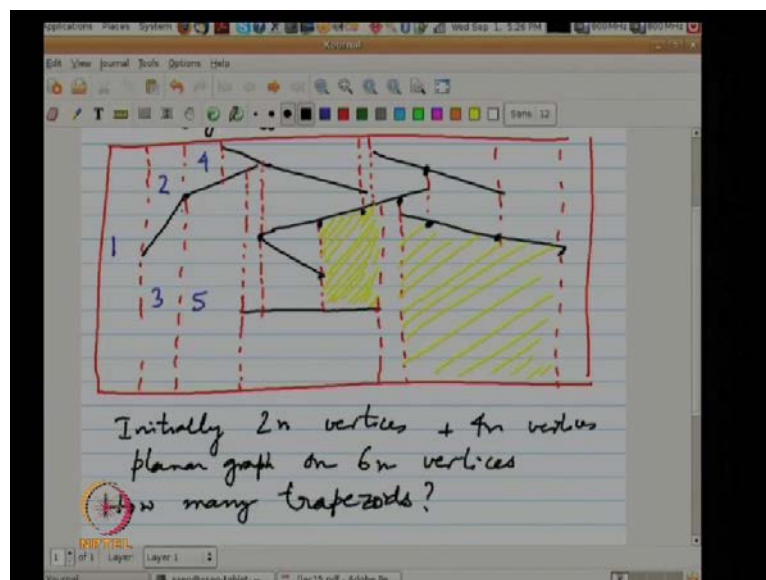 Applications Places System Wed Sep 1, 5:26 PM 800MHz 800MHz
Xournal
Edit View Journal Tools Options Help
T Sans 12
4
2
1
3 5
Initially 2n vertices + 4n vertices
planar graph on 6n vertices
How many trapezoids?
NPTEL
1 of 1 Layer: Layer 1
Xournal